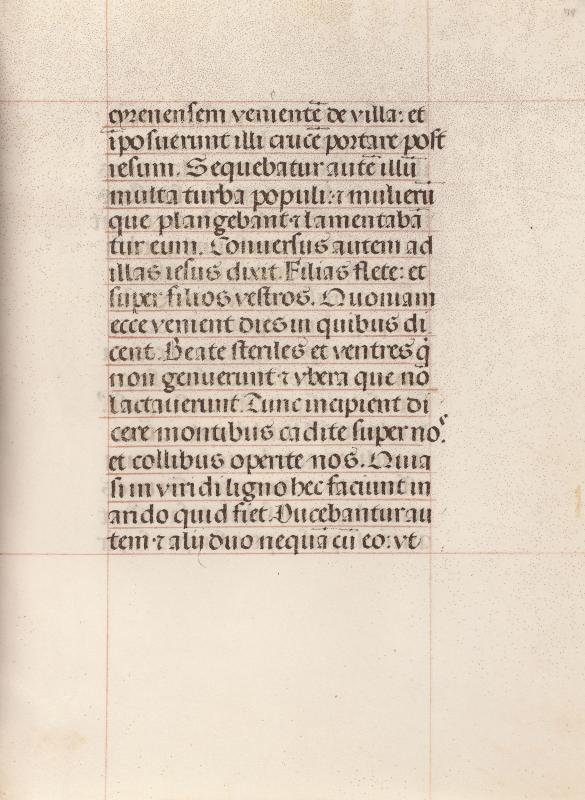 cyrenensem venientē de villa: et
īposuerunt illi crucē portare post
iesum. Sequebatur autē illū
multa turba populi: ⁊ mulierū
que plangebant ⁊ lamentabā
tur eum. Conversus autem ad
illas iesus dixit. Filias flete: et
super filios vestros. Quoniam
ecce venient dies in quibus di
cent. Beate steriles et ventres q̇
non genuerunt ⁊ vbera que nō
lactauerunt. Tunc incipient di
cere montibus cadite super nos.
et collibus operite nos. Quia
si in viridi ligno hec faciunt in
arido quid fiet. Ducebantur au
tem ⁊ alij duo nequā cū eo: vt